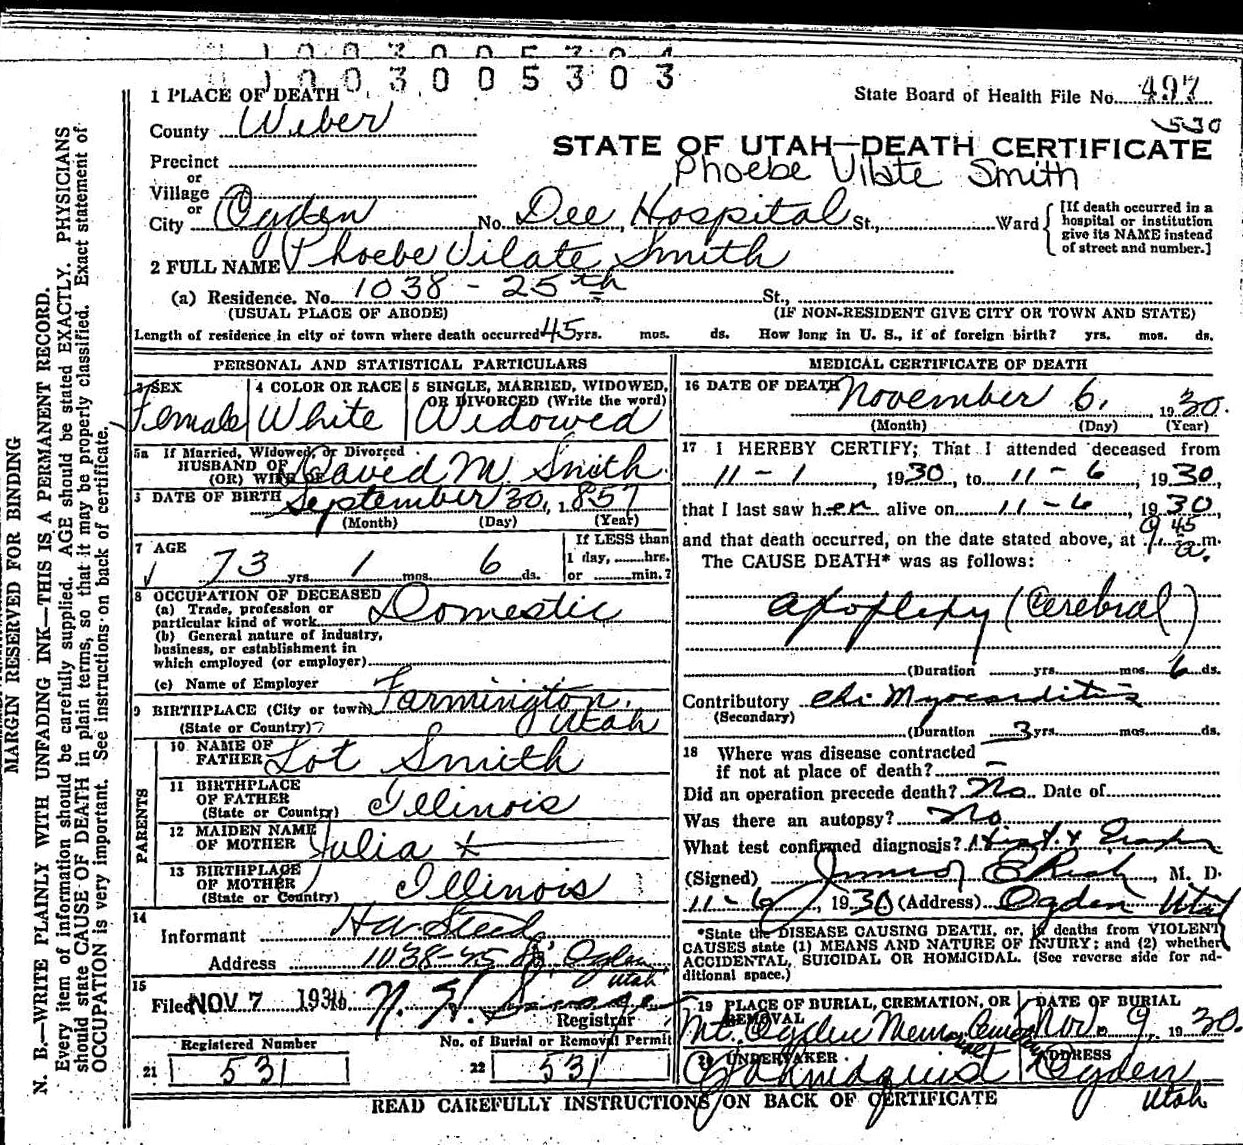 1003005304
1003005303
1 PLACE OF DEATH
State Board of Health File No. 497
530
County Wiber
STATE OF UTAH—DEATH CERTIFICATE
Phoebe Vilate Smith
Precinct
or
Village
or
City Ogden No. Dee Hospital St., Ward
[If death occurred in a
hospital or institution
give its NAME instead
of street and number.]
2 FULL NAME Phoebe Vilate Smith
(a) Residence. No. 1038 - 25th St.,
(USUAL PLACE OF ABODE) (IF NON-RESIDENT GIVE CITY OR TOWN AND STATE)
Length of residence in city or town where death occurred 45 yrs. mos. ds. How long in U. S., if of foreign birth? yrs. mos. ds.
PERSONAL AND STATISTICAL PARTICULARS
3 SEX 4 COLOR OR RACE 5 SINGLE, MARRIED, WIDOWED,
OR DIVORCED (Write the word)
Female White Widowed
5a If Married, Widowed, or Divorced
HUSBAND OF
(OR) WIFE OF David M Smith
6 DATE OF BIRTH September 30, 1857
(Month) (Day) (Year)
7 AGE
73 yrs. 1 mos. 6 ds.
If LESS than
1 day, hrs.
or min.?
8 OCCUPATION OF DECEASED
(a) Trade, profession or
particular kind of work Domestic
(b) General nature of industry,
business, or establishment in
which employed (or employer)
(c) Name of Employer
9 BIRTHPLACE (City or town) Farmington,
(State or Country) Utah
PARENTS
10 NAME OF
FATHER Lot Smith
11 BIRTHPLACE
OF FATHER
(State or Country) Illinois
12 MAIDEN NAME
OF MOTHER Julia
13 BIRTHPLACE
OF MOTHER
(State or Country) Illinois
14
Informant H W Steed
Address 1038-25 St, Ogden,
Utah
15
Filed NOV 7 1930
Registrar
Registered Number No. of Burial or Removal Permit
21 531 22 531
MEDICAL CERTIFICATE OF DEATH
16 DATE OF DEATH November 6, 1930.
(Month) (Day) (Year)
17 I HEREBY CERTIFY; That I attended deceased from
11 - 1, 1930, to 11 - 6, 1930,
that I last saw her alive on 11 - 6, 1930,
and that death occurred, on the date stated above, at 9 45 a. m.
The CAUSE DEATH* was as follows:
apoplexy (Cerebral)
(Duration yrs. mos. 6 ds.
Contributory Chr Myocarditis
(Secondary)
(Duration 3 yrs. mos. ds.
18 Where was disease contracted
if not at place of death? –
Did an operation precede death? No. Date of
Was there an autopsy? No
What test confirmed diagnosis? Hist. &
(Signed) E Rich, M. D.
11 - 6, 1930 (Address) Ogden Utah
*State the DISEASE CAUSING DEATH, or, in deaths from VIOLENT
CAUSES state (1) MEANS AND NATURE OF INJURY; and (2) whether
ACCIDENTAL, SUICIDAL OR HOMICIDAL. (See reverse side for ad-
ditional space.)
19 PLACE OF BURIAL, CREMATION, OR
REMOVAL
DATE OF BURIAL
Mt. Ogden Memorial Cemetery Nov. 9, 1930.
20 UNDERTAKER ADDRESS
Ogden
Utah
READ CAREFULLY INSTRUCTIONS ON BACK OF CERTIFICATE
MARGIN RESERVED FOR BINDING
N. B.—WRITE PLAINLY WITH UNFADING INK—THIS IS A PERMANENT RECORD.
Every item of information should be carefully supplied. AGE should be stated EXACTLY. PHYSICIANS
should state CAUSE OF DEATH in plain terms, so that it may be properly classified. Exact statement of
OCCUPATION is very important. See instructions on back of certificate.